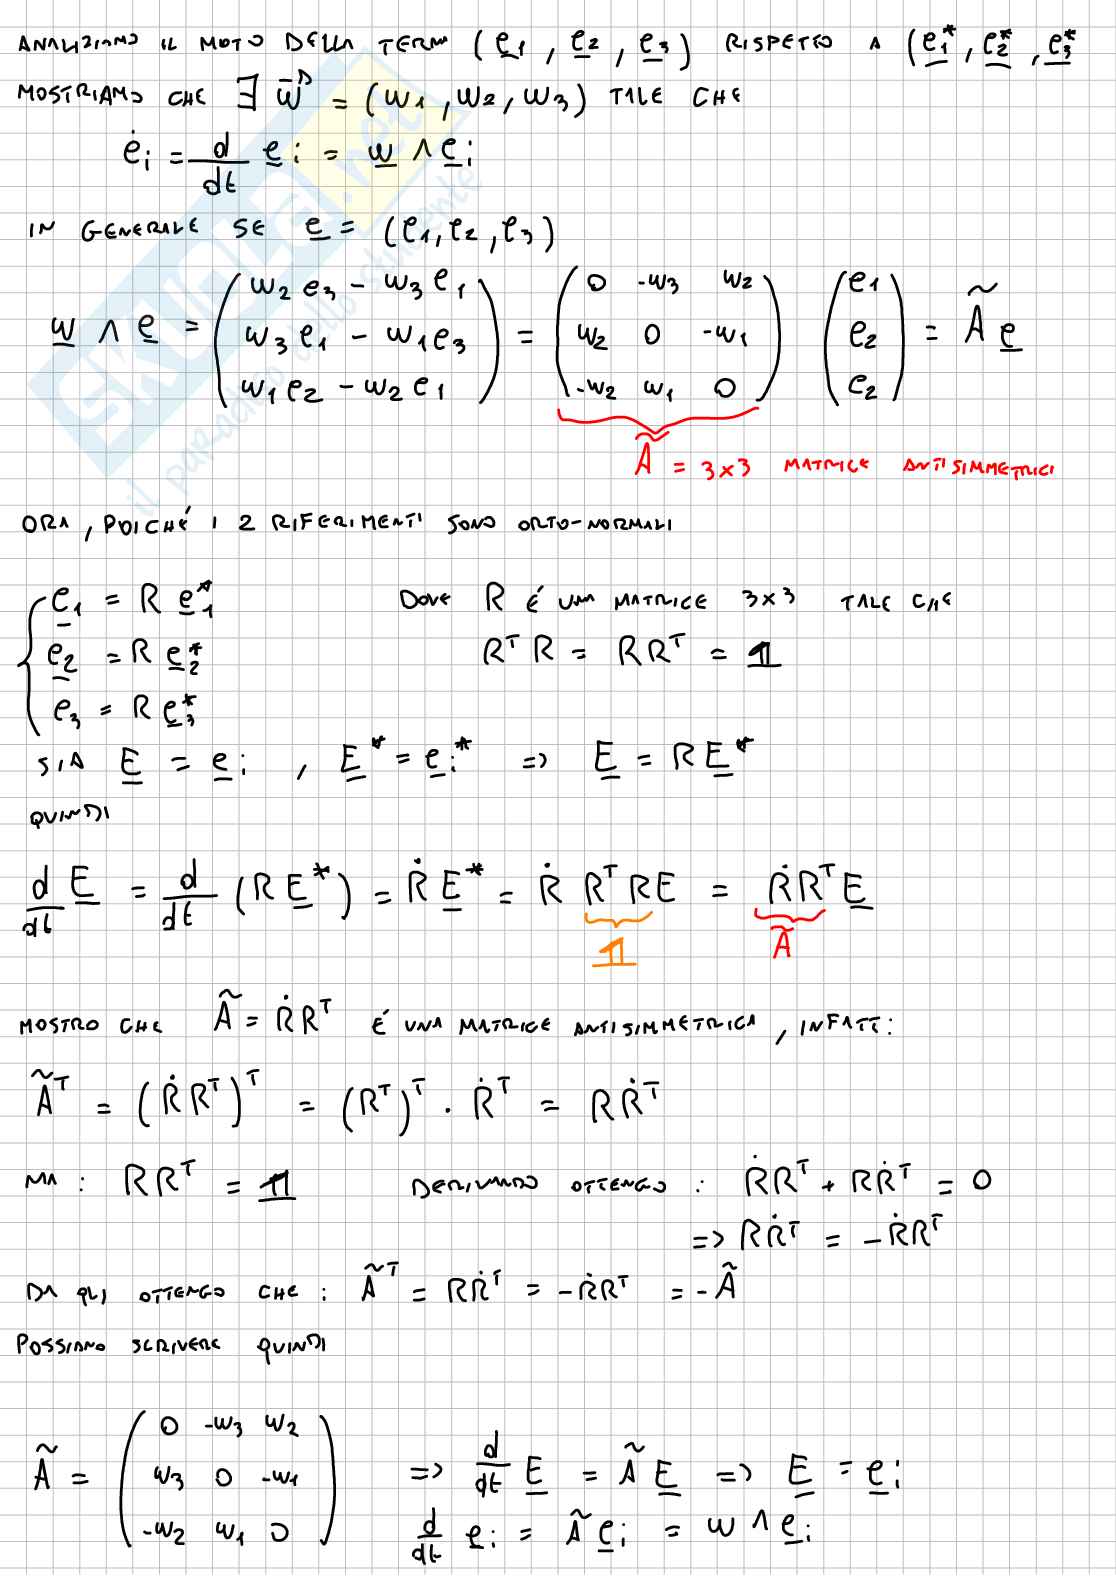 ANALIZIAMO IL MOTO DELLA TERNA (e1, e2, e3) RISPETTO A (e1*, e2*, e3*)
MOSTRIAMO CHE ∃ w⃗ = (w1, w2, w3) TALE CHE
ė_i = d/dt e_i = w ∧ e_i
IN GENERALE SE e = (e1, e2, e3)
w ∧ e = (w2 e3 - w3 e1 ; w3 e1 - w1 e3 ; w1 e2 - w2 e1) = (0 -w3 w2 ; w2 0 -w1 ; -w2 w1 0) (e1 ; e2 ; e2) = Ã e
Ã = 3×3 MATRICE ANTISIMMETRICA
ORA, POICHÉ I 2 RIFERIMENTI SONO ORTO-NORMALI
e1 = R e1* DOVE R É UNA MATRICE 3×3 TALE CHE
e2 = R e2* R^T R = R R^T = 𝟙
e3 = R e3*
SIA E = e_i , E* = e_i* => E = R E*
QUINDI
d/dt E = d/dt (R E*) = Ṙ E* = Ṙ R^T R E = Ṙ R^T E
𝟙 Ã
MOSTRO CHE Ã = Ṙ R^T É UNA MATRICE ANTISIMMETRICA, INFATTI:
Ã^T = (Ṙ R^T)^T = (R^T)^T · Ṙ^T = R Ṙ^T
MA: R R^T = 𝟙 DERIVANDO OTTENGO: Ṙ R^T + R Ṙ^T = 0
=> R Ṙ^T = -Ṙ R^T
DA QUI OTTENGO CHE: Ã^T = R Ṙ^T = -Ṙ R^T = -Ã
POSSIAMO SCRIVERE QUINDI
Ã = (0 -w3 w2 ; w3 0 -w1 ; -w2 w1 0) => d/dt E = Ã E => E = e_i
d/dt e_i = Ã e_i = w ∧ e_i
SKUOLA.net
il paradiso dello studente